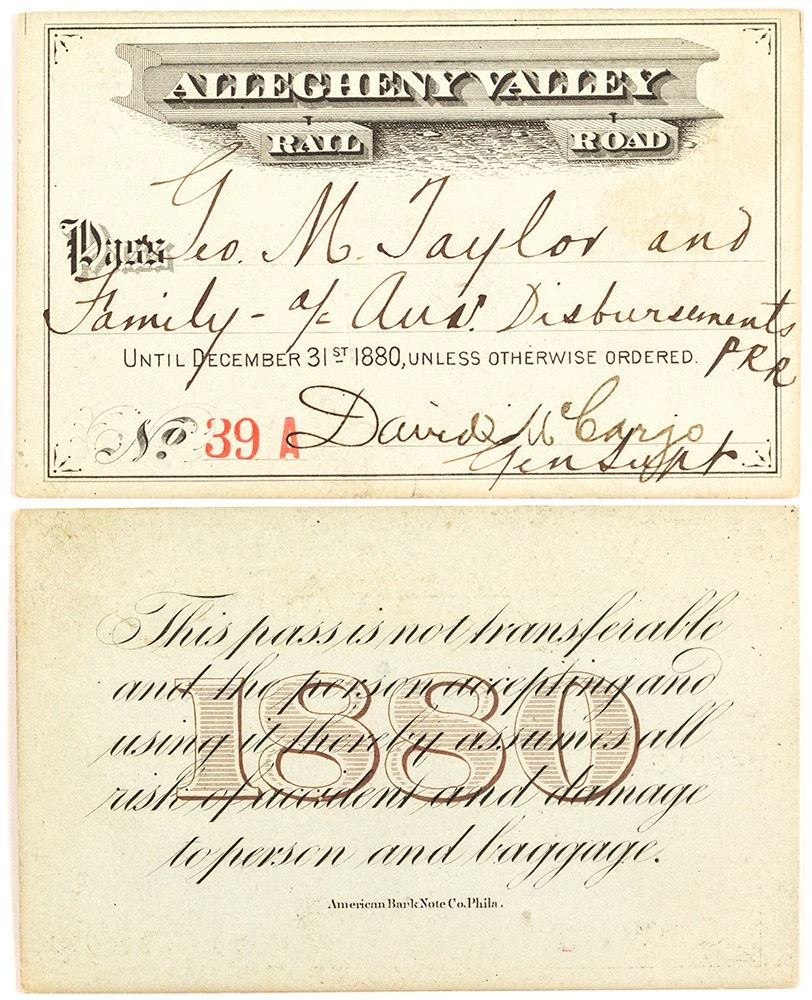 ALLEGHENY VALLEY
RAIL ROAD
Pass Geo. M. Taylor and
Family - a/c Aud. Disbursements
UNTIL DECEMBER 31ST 1880, UNLESS OTHERWISE ORDERED. PRR
No. 39 A David McCargo
Gen Supt.
This pass is not transferable
and the person accepting and
1880
using it thereby assumes all
risk of accident and damage
to person and baggage.
American Bank Note Co. Phila.